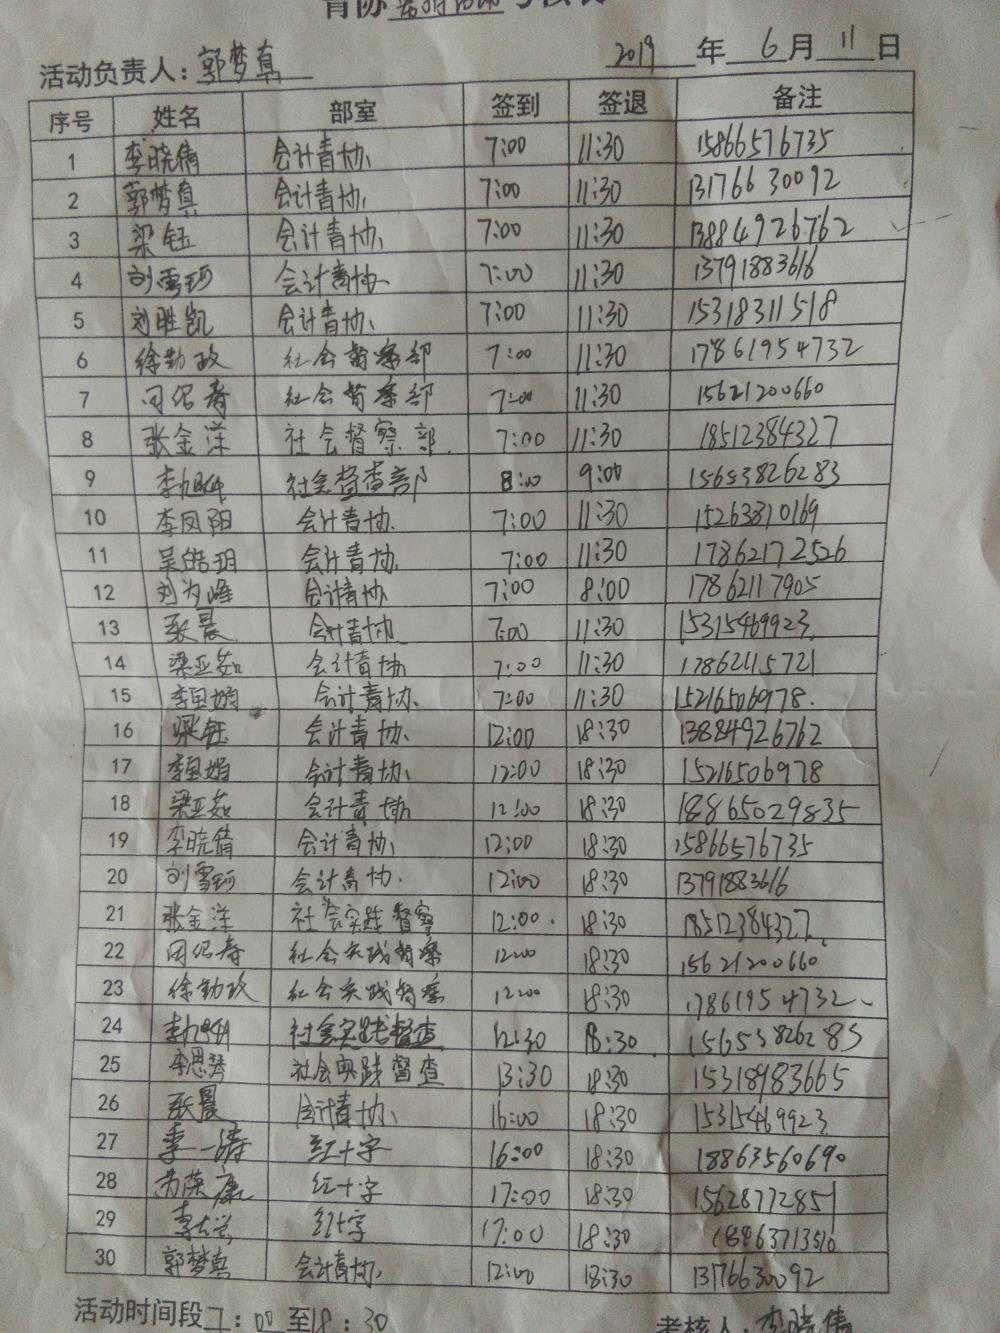 青协
活动负责人：郭梦真 2019年6月11日
序号 姓名 部室 签到 签退 备注
1 李晓倩 会计青协 7:00 11:30 15866576735
2 郭梦真 会计青协 7:00 11:30 13176630092
3 梁钰 会计青协 7:00 11:30 13884926762
4 刘雪珂 会计青协 7:00 11:30 13791883616
5 刘胜凯 会计青协 7:00 11:30 15318311518
6 徐勤政 社会督察部 7:00 11:30 17861954732
7 社会督察部 7:00 11:30 15621200660
8 张金洋 社会督察部 7:00 11:30 18512384327
9 社会督查部 8:00 9:00 15653826283
10 李凤阳 会计青协 7:00 11:30 15263810169
11 吴皓玥 会计青协 7:00 11:30 17862172526
12 刘为峰 会计青协 7:00 8:00 17862117905
13 张晨 会计青协 7:00 11:30 15315469923
14 梁亚茹 会计青协 7:00 11:30 17862115721
15 会计青协 7:00 11:30 15216506978
16 梁钰 会计青协 12:00 18:30 13884926762
17 会计青协 12:00 18:30 15216506978
18 梁亚茹 会计青协 12:00 18:30 18865029835
19 李晓倩 会计青协 12:00 18:30 15866576735
20 刘雪珂 会计青协 12:00 18:30 13791883616
21 张金洋 社会实践督察 12:00 18:30 18512384327
22 社会实践督察 12:00 18:30 15621200660
23 徐勤政 社会实践督察 12:00 18:30 17861954732
24 社会实践督查 12:30 18:30 15653826283
25 李思琴 社会实践督查 13:30 18:30 15318983665
26 张晨 会计青协 16:00 18:30 15315469923
27 季一涛 红十字 16:00 18:30 18863560690
28 红十字 17:00 18:30 15628772851
29 红十字 17:00 18:30 18463713510
30 郭梦真 会计青协 12:00 18:30 13176630092
活动时间段7:00至18:30 考核人：李晓倩